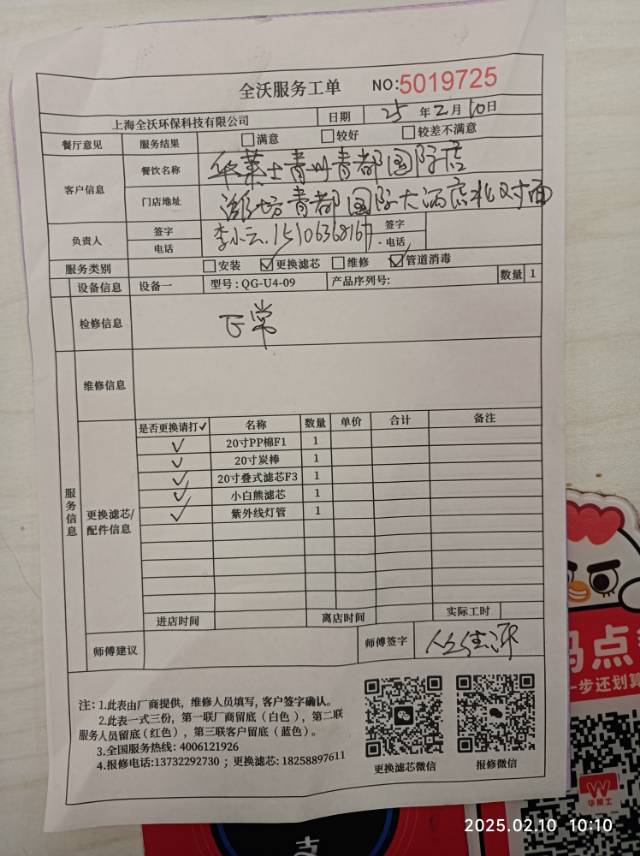 全沃服务工单 NO:5019725
上海全沃环保科技有限公司 日期 25 年 2 月 10 日
餐厅意见 服务结果 □满意 □较好 □较差不满意
客户信息 餐饮名称 华莱士青州青都国际店
门店地址 潍坊青都国际大酒店北对面
负责人 签字 李小云 签字
电话 电话
服务类别 □安装 ☑更换滤芯 □维修 ☑管道消毒
设备信息 设备一 型号: QG-U4-09 产品序列号: 数量 1
检修信息 正常
维修信息
服务信息
更换滤芯/配件信息
是否更换请打✓ 名称 数量 单价 合计 备注
✓ 20寸PP棉F1 1
✓ 20寸炭棒 1
✓ 20寸叠式滤芯F3 1
✓ 小白熊滤芯 1
✓ 紫外线灯管 1
进店时间 离店时间 实际工时
师傅建议 师傅签字
注: 1.此表由厂商提供，维修人员填写, 客户签字确认。
2.此表一式三份，第一联厂商留底（白色），第二联
服务人员留底（红色），第三联客户留底（蓝色）。
3.全国服务热线: 4006121926
4.报修电话:13732292730；更换滤芯: 18258897611
更换滤芯微信 报修微信
码点
一步还划算
华莱士
支
2025.02.10 10:10